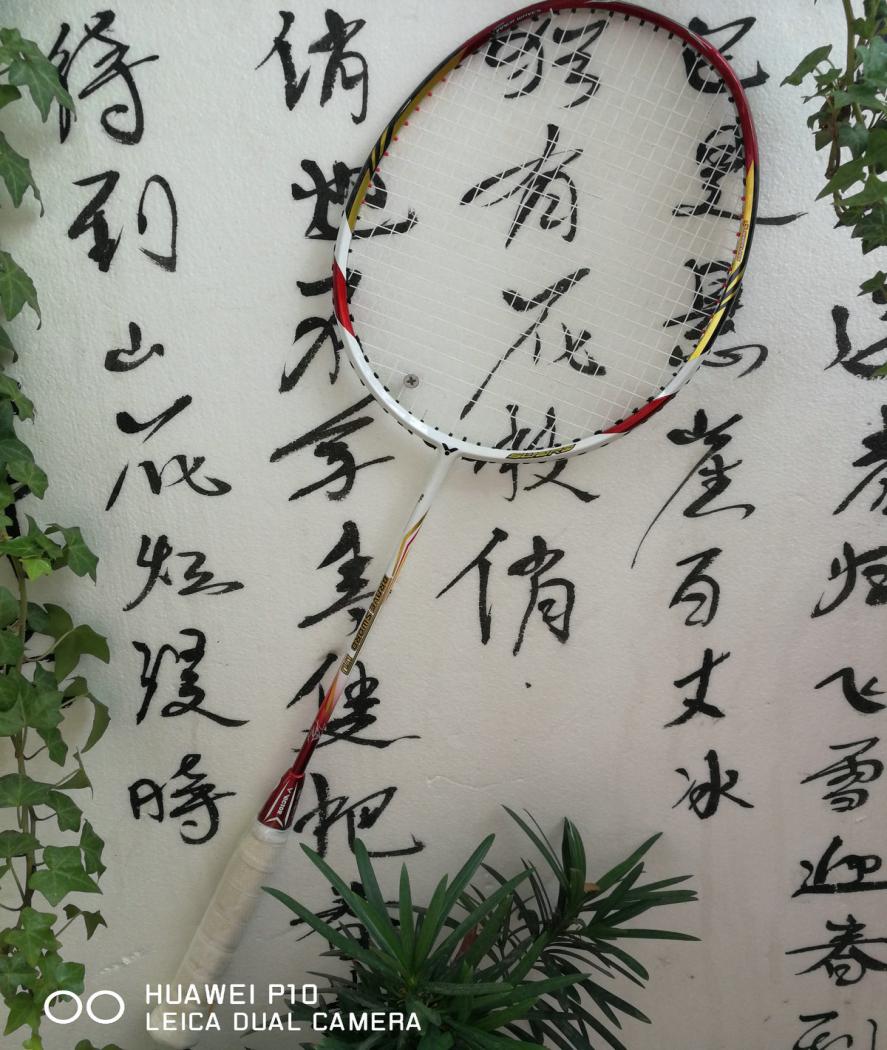 送春归飞雪迎春到
已是悬崖百丈冰
犹有花枝俏
俏也不争春只把春
待到山花烂漫時
BRAVE SWORD
VICTOR
HUAWEI P10
LEICA DUAL CAMERA